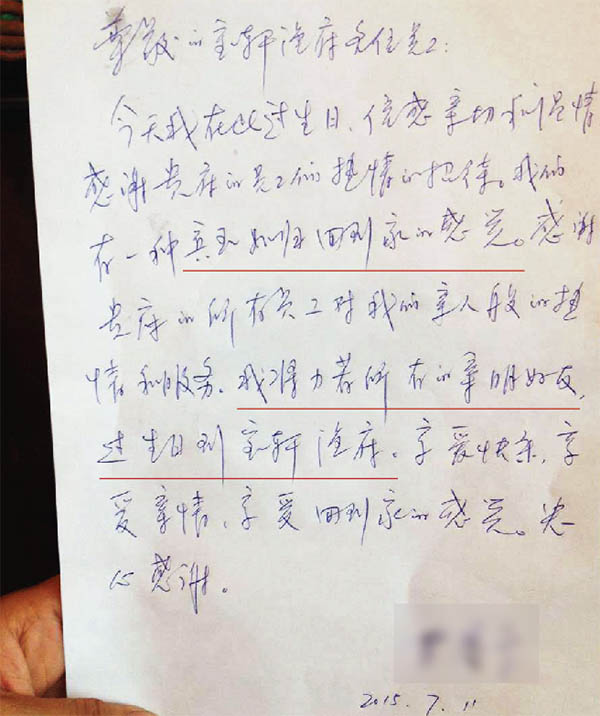 尊敬的宝轩渔府各位员工:
今天我在此过生日、倍感亲切和温情
感谢贵府的员工们热情的招待。我们
有一种宾至如归回到家的感觉。感谢
贵府的所有员工对我们亲人般的热
情和服务、我将力荐所有的亲朋好友,
过生日到宝轩渔府。享受快乐,享
受亲情,享受回到家的感觉。忠
心感谢。
2015.7.11